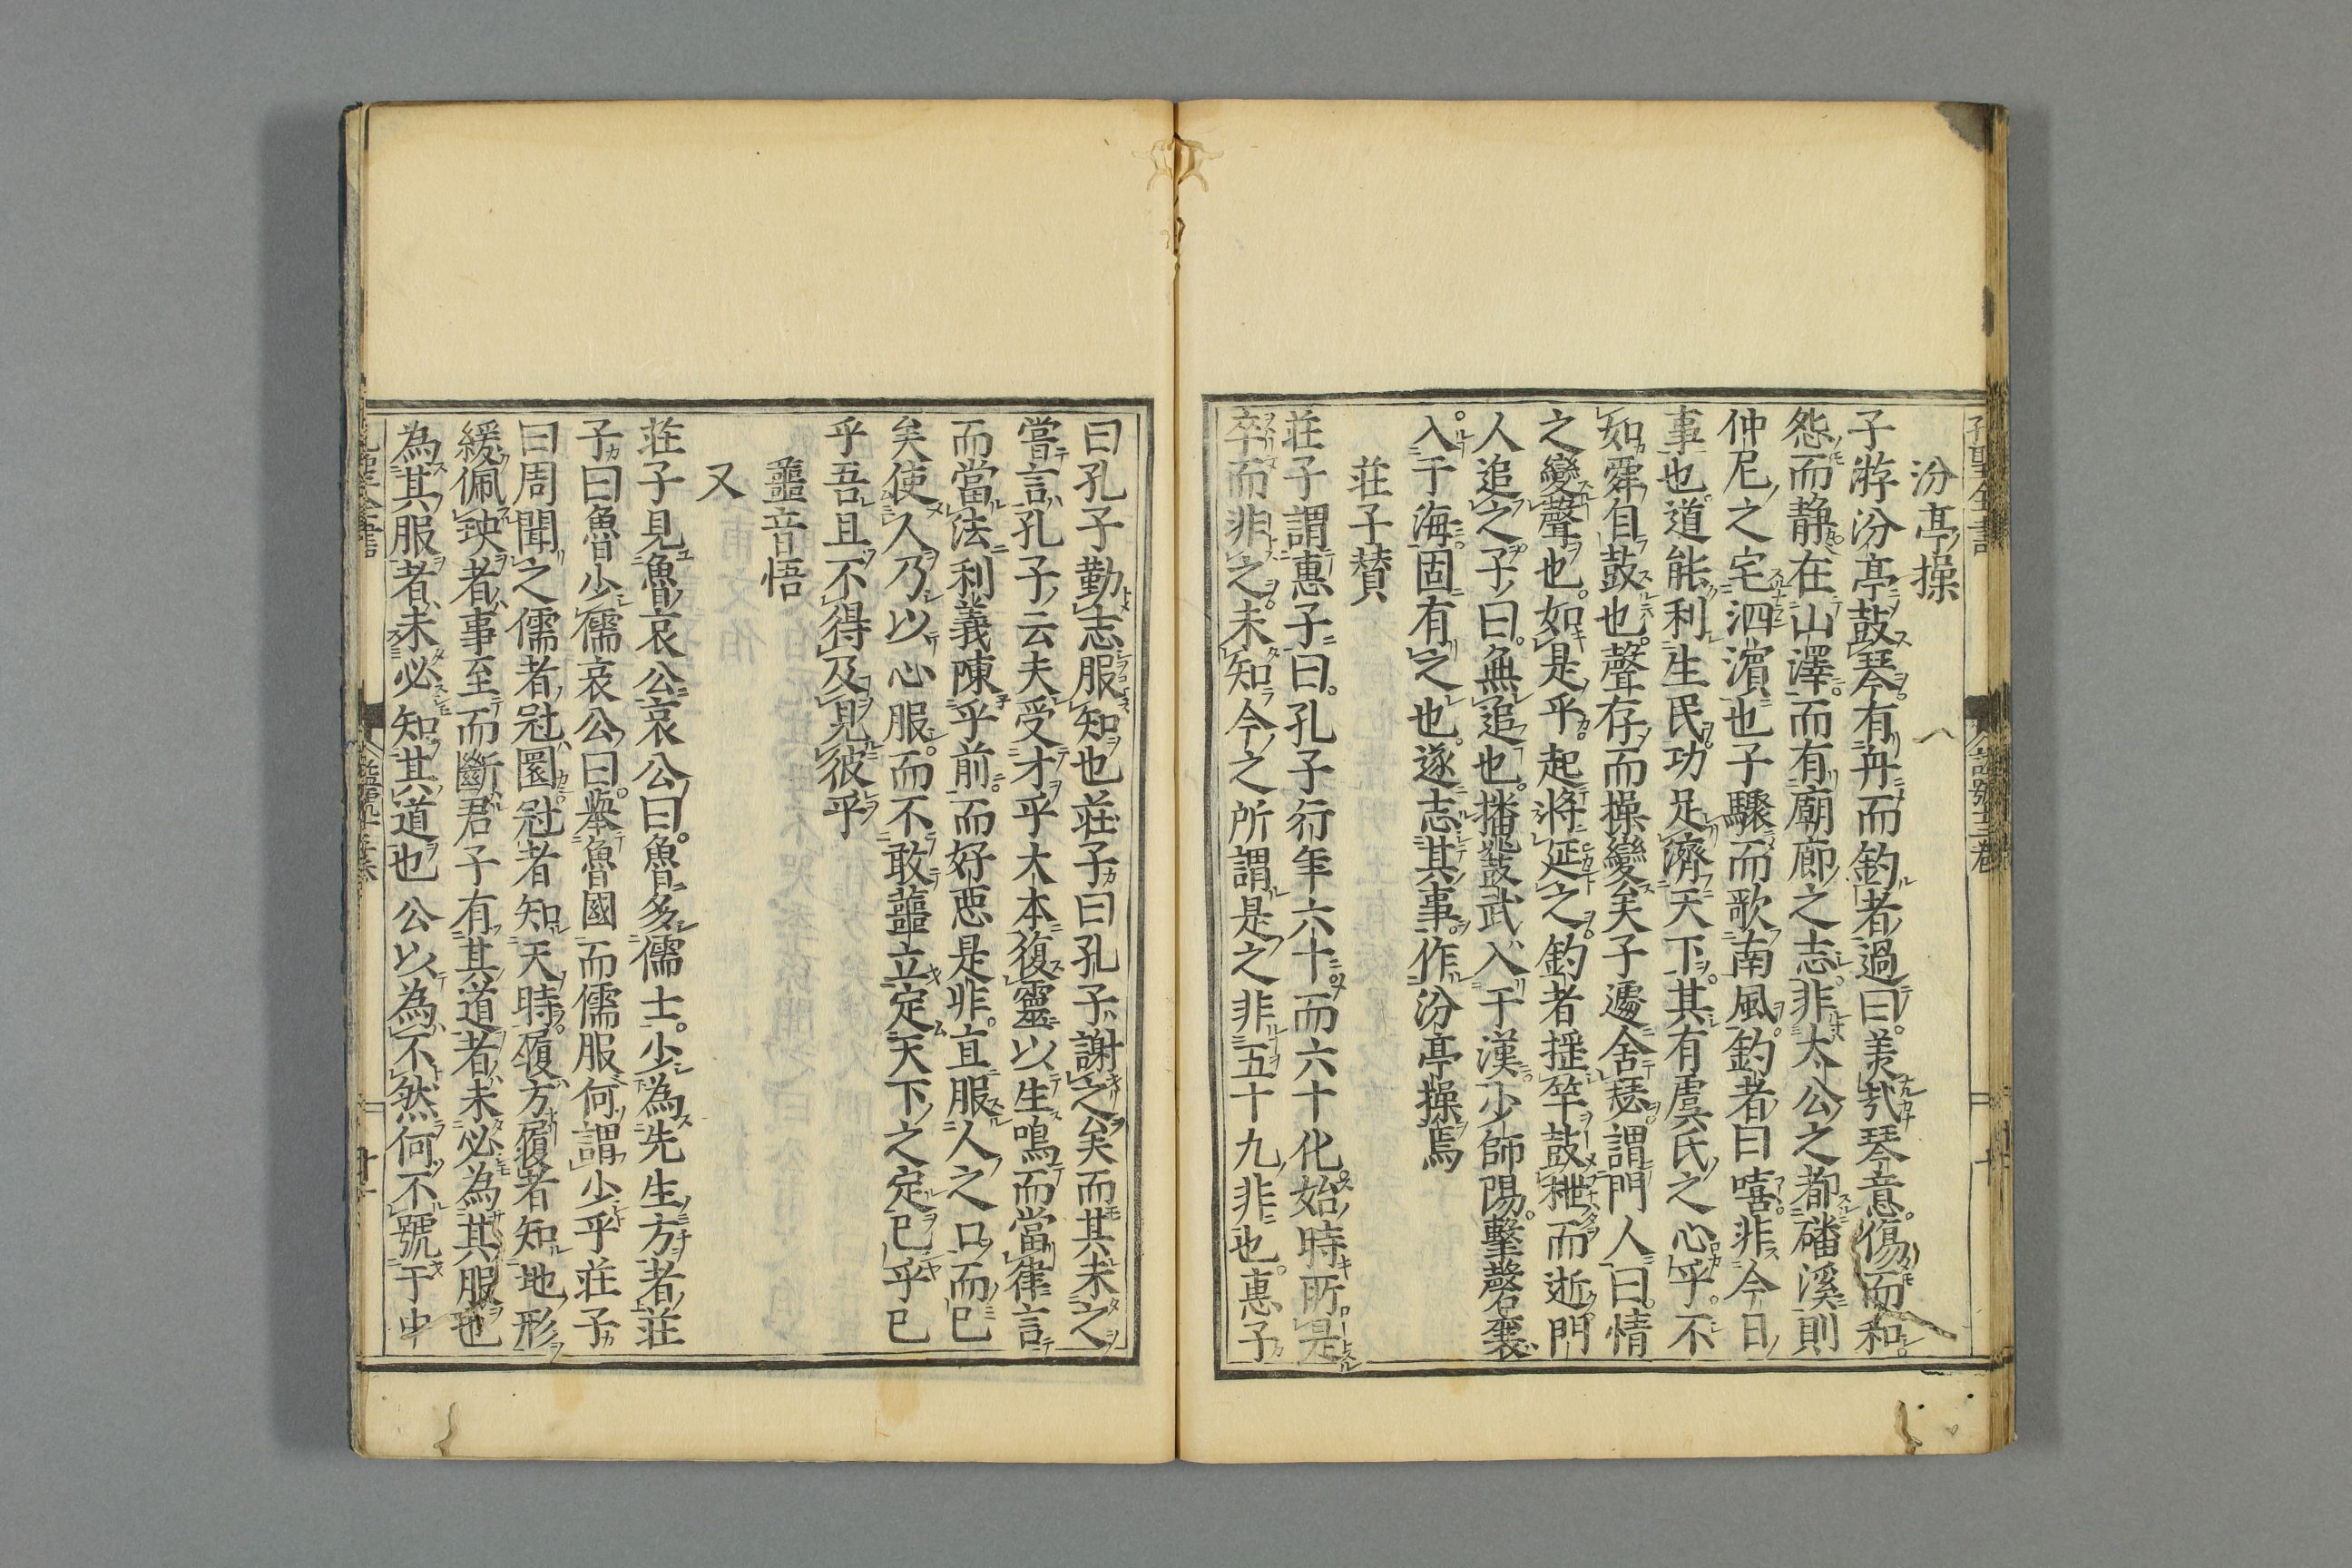 汾亭操
子遊汾亭鼓琴有舟而釣者過曰美哉琴意傷而和
怨而靜在山澤而有廟廊之志非太公之都磻溪則
仲尼之宅泗濱也子驟而歌南風釣者曰嘻非今日
事也道能利生民功足濟天下其有虞氏之心乎不
如舜自鼓也聲存而操變矣子遽舍瑟謂門人曰情
之變聲也如是乎起將延之釣者揺竿鼓枻而逝門
人追之子曰無追也播鼗武入于漢少師陽擊磬襄
入于海固有之也遂志其事作汾亭操焉
莊子賛
莊子謂惠子曰孔子行年六十而六十化始時所是
卒而非之未知今之所謂是之非五十九非也惠子
曰孔子勤志服知也莊子曰孔子謝之矣而其未之
嘗言孔子云夫受才乎大本復靈以生鳴而當律言
而當法利義陳乎前而好惡是非直服人之口而已
矣使人乃以心服而不敢蘁立定天下之定已乎已
乎吾且不得及見彼乎
蘁音悟
又
莊子見魯哀公哀公曰魯多儒士少為先生方者莊
子曰魯少儒哀公曰舉魯國而儒服何謂少乎莊子
曰周聞之儒者冠圜冠者知天時履方履者知地形
緩佩玦者事至而斷君子有其道者未必為其服也
為其服者未必知其道也公以為不然何不號于中